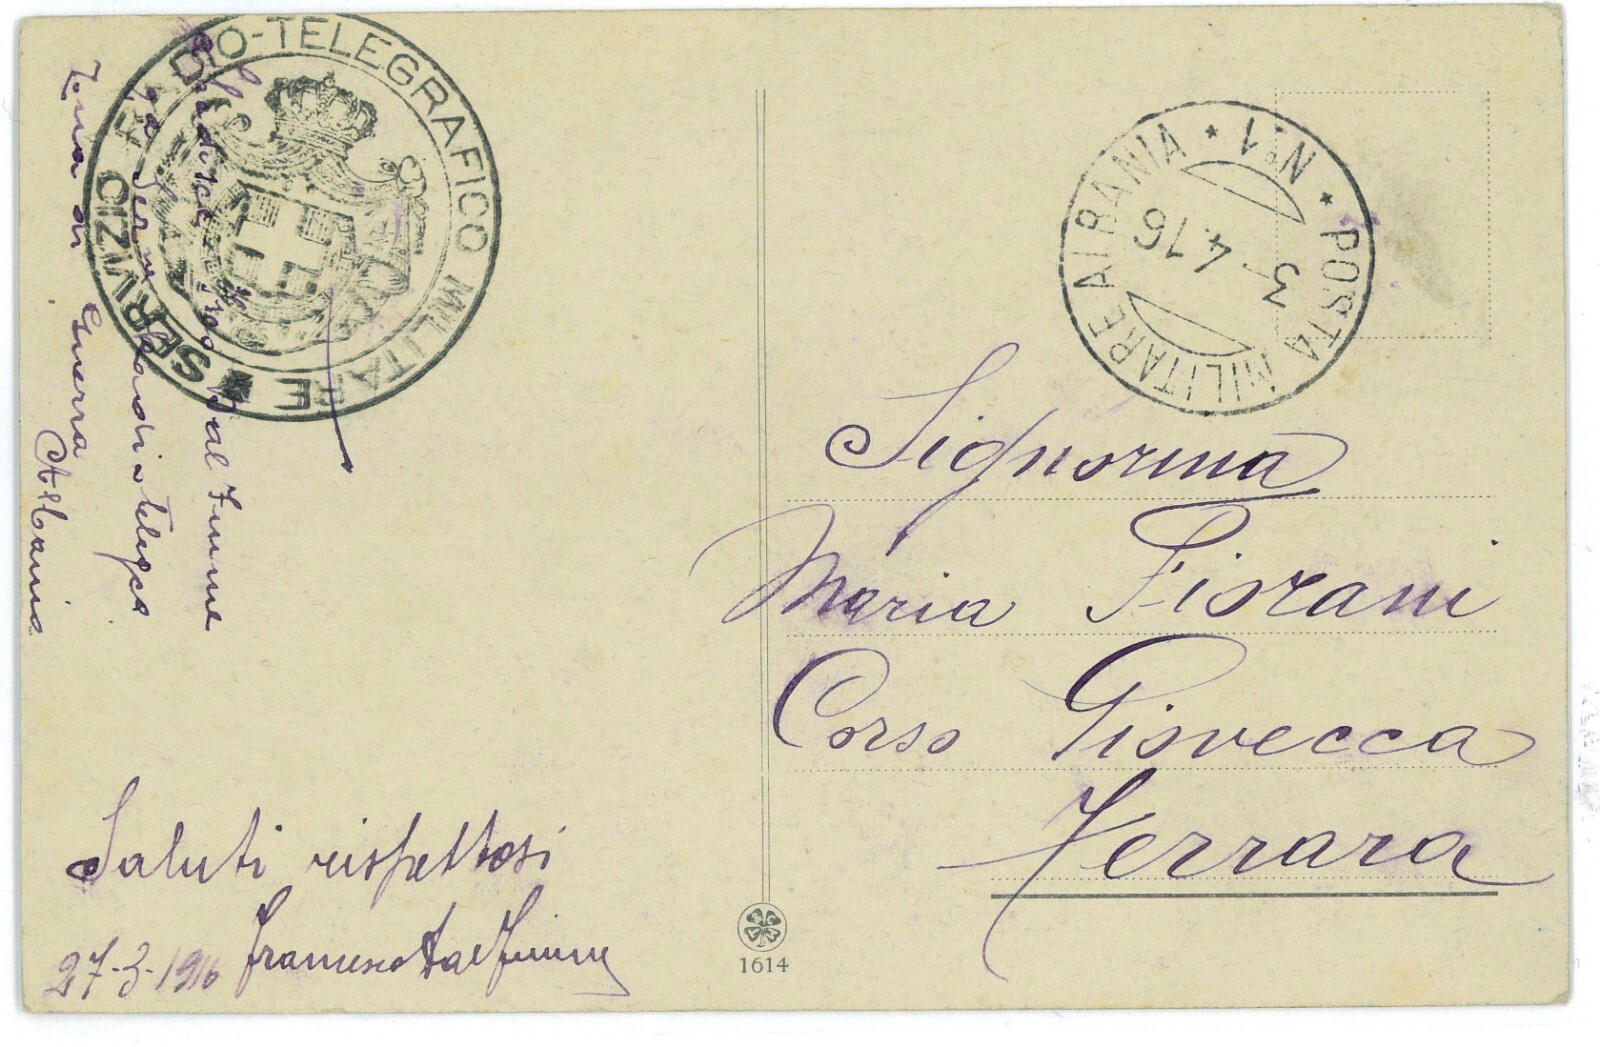 SERVIZIO RADIO-TELEGRAFICO MILITARE
Francesco Dal Fiume
Zona di Guerra
Albania
Saluti rispettosi
27-3-1916 Francesco Dal Fiume
POSTA MILITARE ALBANIA * N° 1 *
3-4.16
Signorina
Maria Fiorani
Corso Giovecca
Ferrara
1614